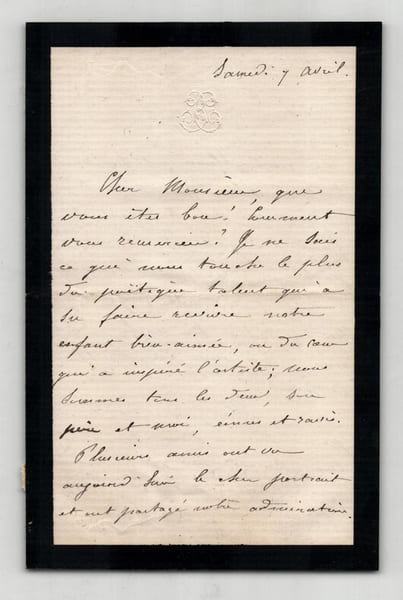 Samedi 7 avril.
Cher Monsieur, que
vous êtes bon! Comment
vous remercier? Je ne sais
ce qui nous touche le plus
du poëtique talent qui a
su faire revivre notre
enfant bien-aimée, ou du cœur
qui a inspiré l'artiste; nous
sommes tous les deux, son
père et moi, émus et ravis.
Plusieurs amis ont vu
aujourd'hui le cher portrait
et ont partagé notre admiration.